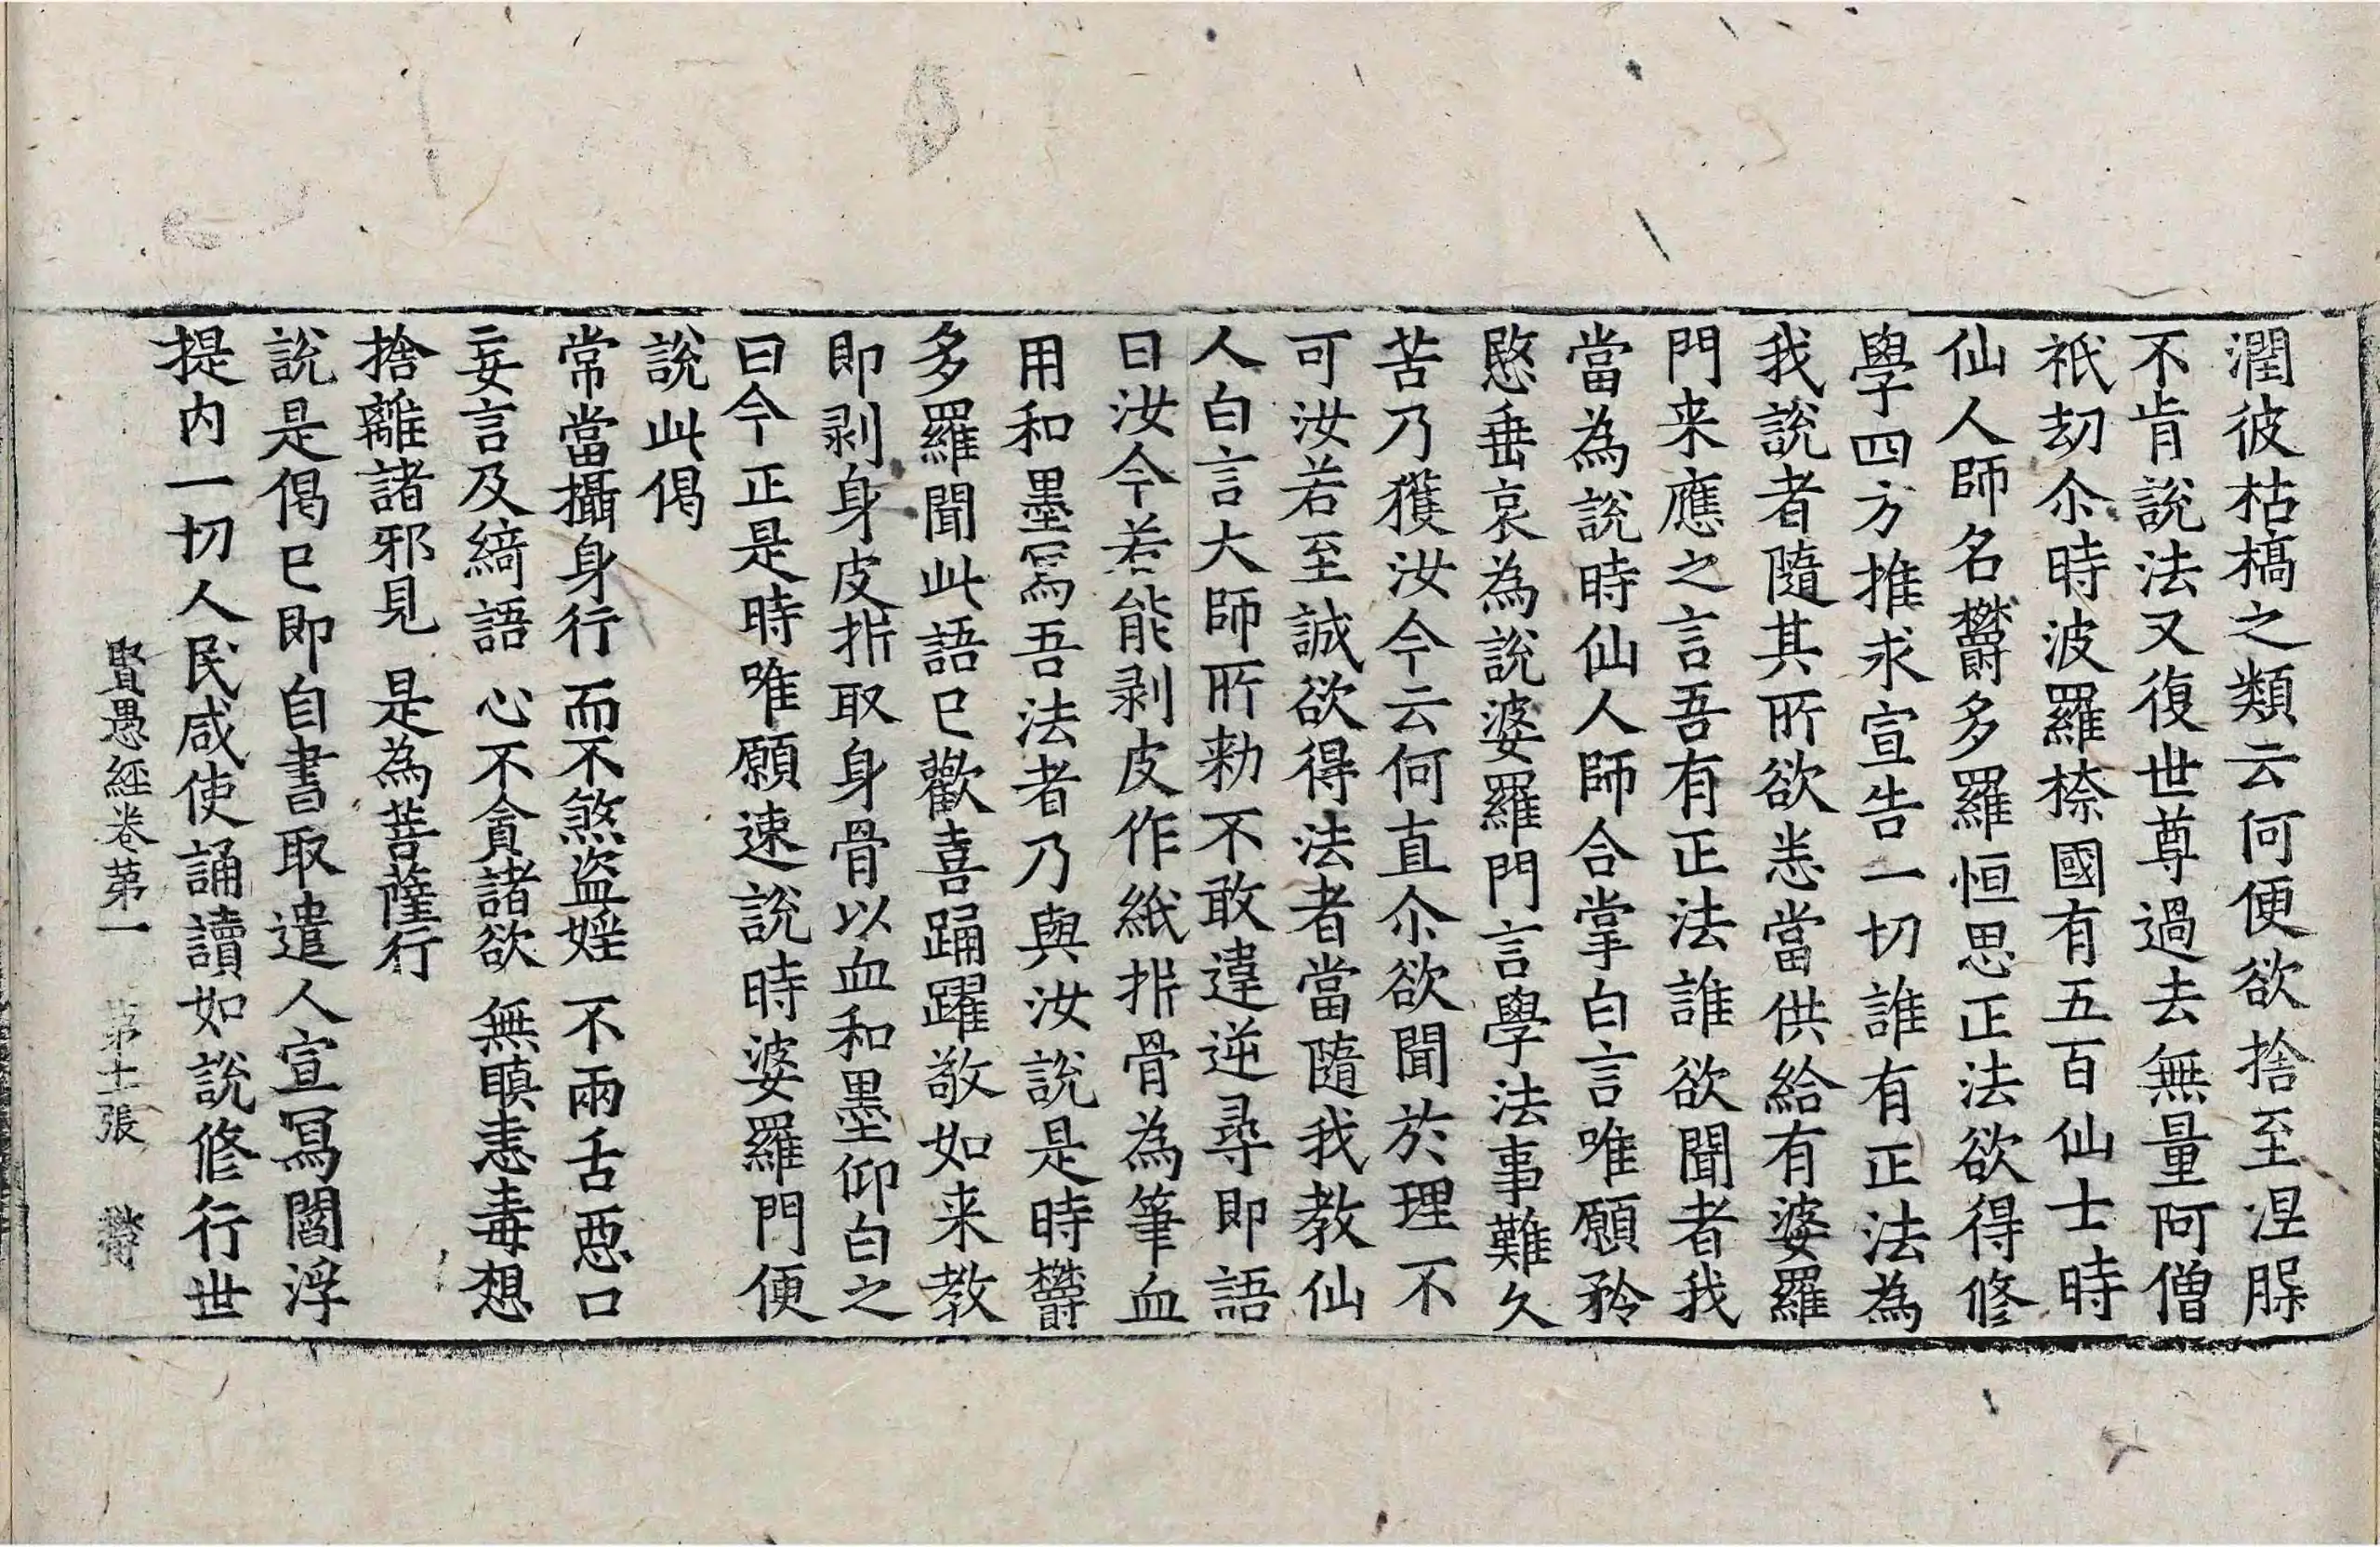 潤彼枯槁之類云何便欲捨至涅槃
不肯說法又復世尊過去無量阿僧
祇劫尒時波羅㮈國有五百仙士時
仙人師名欝多羅恒思正法欲得修
學四方推求宣告一切誰有正法為
我說者隨其所欲悉當供給有婆羅
門来應之言吾有正法誰欲聞者我
當為說時仙人師合掌白言唯願矜
愍垂哀為說婆羅門言學法事難久
苦乃獲汝今云何直尒欲聞於理不
可汝若至誠欲得法者當隨我教仙
人白言大師所勑不敢違逆尋即語
曰汝今若能剥皮作紙析骨為筆血
用和墨寫吾法者乃與汝說是時欝
多羅聞此語已歡喜踊躍敬如来教
即剥身皮析取身骨以血和墨仰白之
曰今正是時唯願速說時婆羅門便
說此偈
常當攝身行 而不煞盗婬 不兩舌惡口
妄言及綺語 心不貪諸欲 無瞋恚毒想
捨離諸邪見 是為菩薩行
說是偈已即自書取遣人宣寫閻浮
提内一切人民咸使誦讀如說修行世
賢愚經卷第一 第十二張 欝